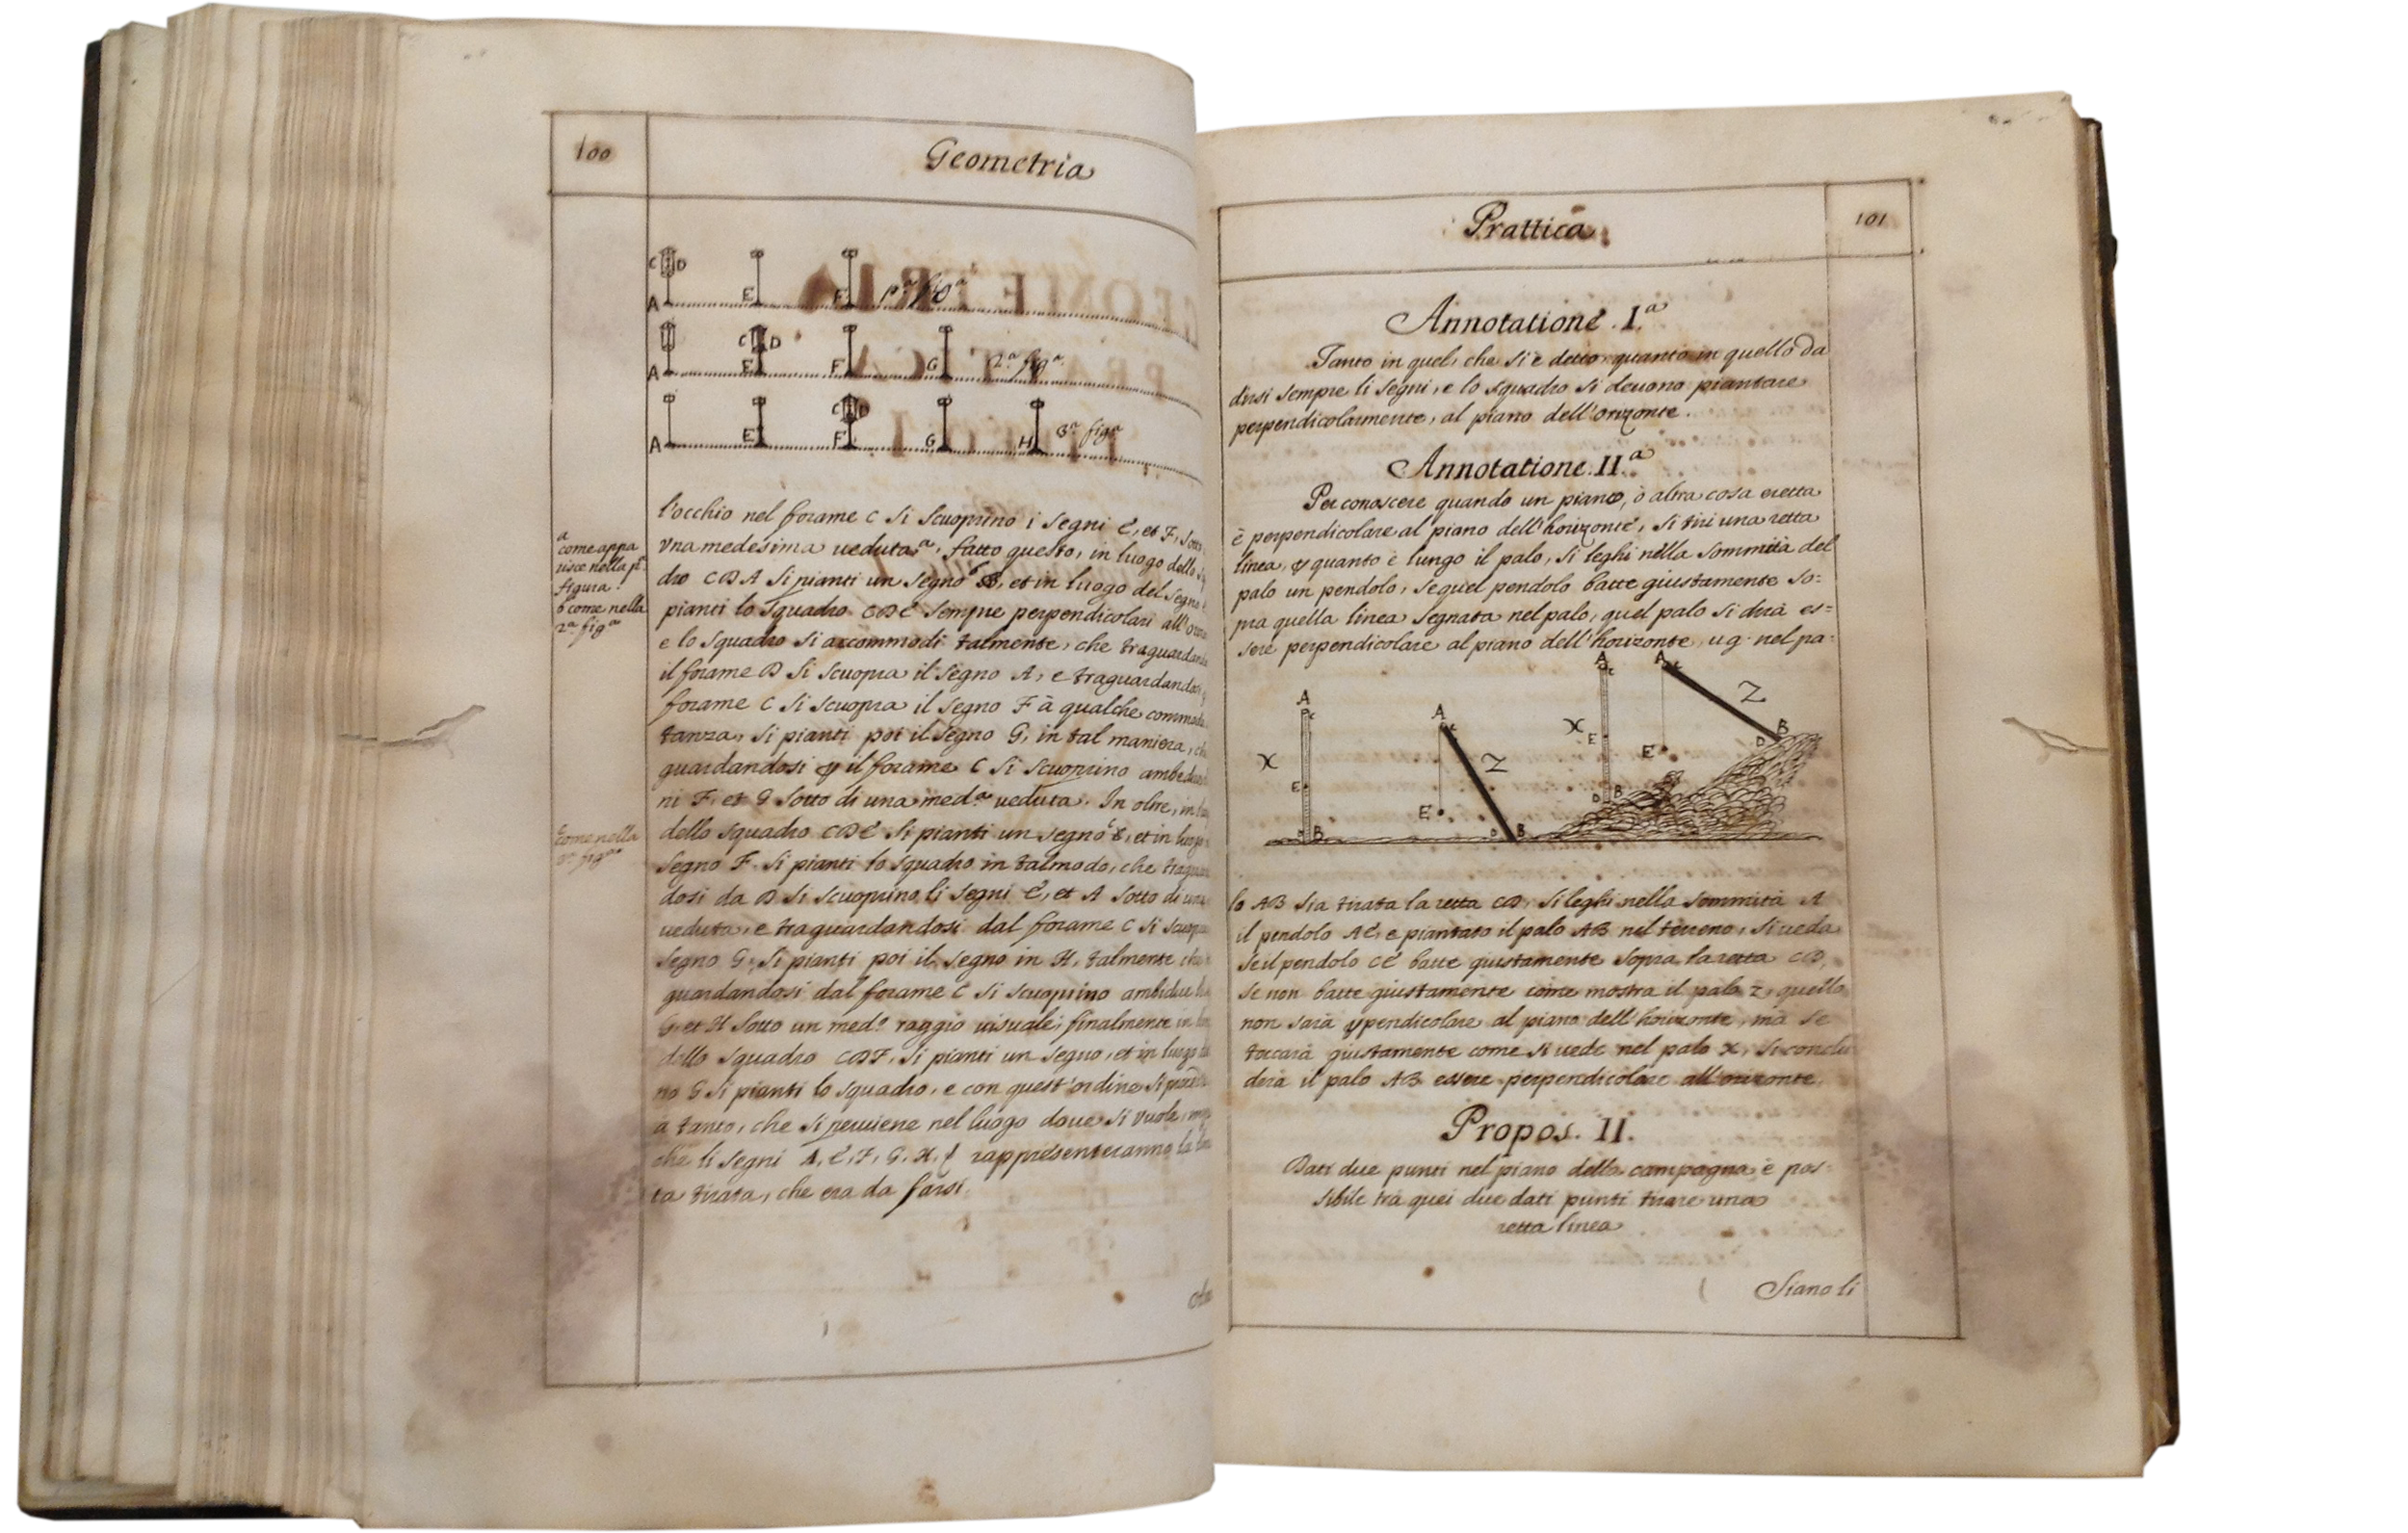 100
Geometria
C D
A E F pª figª
C D
A E F G 2ª figª
C D
A E F G H 3ª figª
l'occhio nel forame C si scuoprino i segni E, et F, sotto
vna medesima veduta ª, fatto questo, in luogo dello
dro CDA si pianti un segno ᵇ, et in luogo del segno
pianti lo squadro CDE sempre perpendicolari all'
e lo squadro si accommodi talmente, che traguardando
il forame D si scuopra il segno A, e traguardandosi
forame C si scuopra il segno F à qualche commoda
tanza, si pianti poi il segno G, in tal maniera, che
guardandosi p il forame C si scuoprino ambedue
ni F, et G sotto di una med.ª veduta. In oltre, in
dello squadro CDE si pianti un segno ᶜ, et in luogo
segno F. si pianti lo squadro in tal modo, che
dosi da D si scuoprino li segni E, et A sotto di una
veduta, e traguardandosi dal forame C si scuopra
segno G, si pianti poi il segno in H, talmente che
guardandosi dal forame C si scuoprino ambidue li
G, et H sotto un med.º raggio visuale; finalmente in
dello squadro CDF, si pianti un segno, et in luogo
no G si pianti lo squadro, e con quest'ordine si
à tanto, che si perviene nel luogo dove si vuole,
che li segni A, E, F, G, H, rappresenteranno la
ta tirata, che era da farsi.
a
come appa
risce nella pª
figura.
b come nella
2ª figª
c come nella
figª
Prattica
101
Annotatione. Iª
Tanto in quel, che si è detto quanto in quello da
dirsi sempre li segni, e lo squadro si devono piantare
perpendicolarmente, al piano dell'orizonte.
Annotatione. II.ª
Per conoscere quando un piano, ò altra cosa eretta
è perpendicolare al piano dell'horizonte, si tiri una retta
linea, p quanto è lungo il palo, si leghi nella sommità del
palo un pendolo, se quel pendolo batte giustamente so=
pra quella linea segnata nel palo, quel palo si dirà es=
sere perpendicolare al piano dell'horizonte, u.g. nel pa=
A C X E D B
A C Z E D B
A C X E D B
A C Z E D B
lo AB sia tirata la retta CD, si leghi nella sommità A
il pendolo AE, e piantato il palo AB nel terreno, si veda
se il pendolo CE batte giustamente sopra la retta CD,
se non batte giustamente come mostra il palo Z, quello
non sarà ppendicolare al piano dell'horizonte, mà se
toccarà giustamente come si vede nel palo X, si conclu
derà il palo AB essere perpendicolare all'orizonte.
Propos. II.
Dati due punti nel piano della campagna è pos=
sibile trà quei due dati punti tirare una
retta linea
Siano li